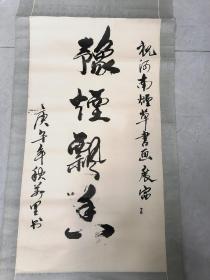 祝河南烟草书画展
豫煙飄香
庚午年秋万里书